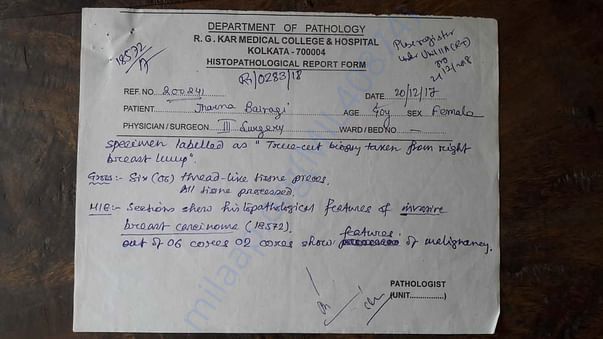 DEPARTMENT OF PATHOLOGY
R. G. KAR MEDICAL COLLEGE & HOSPITAL
KOLKATA - 700004
HISTOPATHOLOGICAL REPORT FORM
18572/A
R/0283/18
Please register
under
REF. NO. 200241 DATE 20/12/17
PATIENT Jharna Bairagi AGE 40y SEX Female
PHYSICIAN/SURGEON III Surgery WARD/BED NO —
Specimen labelled as "True-cut biopsy taken from right
breast lump".
Gross:- Six (06) thread-like tissue pieces.
All tissue processed.
M/E:- Sections show histopathological features of invasive
breast carcinoma (18572).
out of 06 cores 02 cores show features of malignancy.
PATHOLOGIST
(UNIT................)
milaap